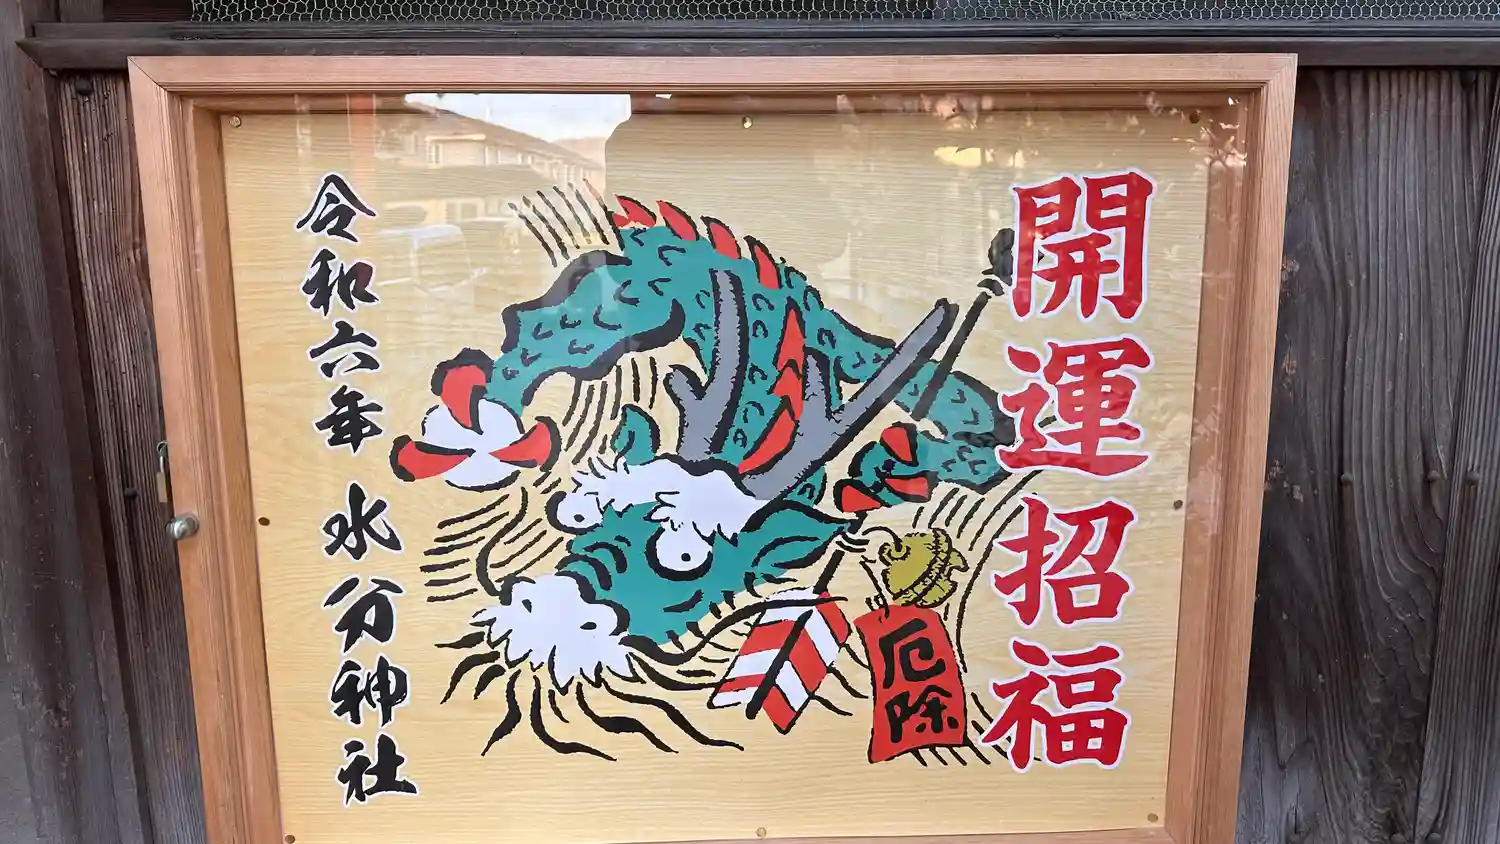 開運招福
厄除
令和六年 水分神社